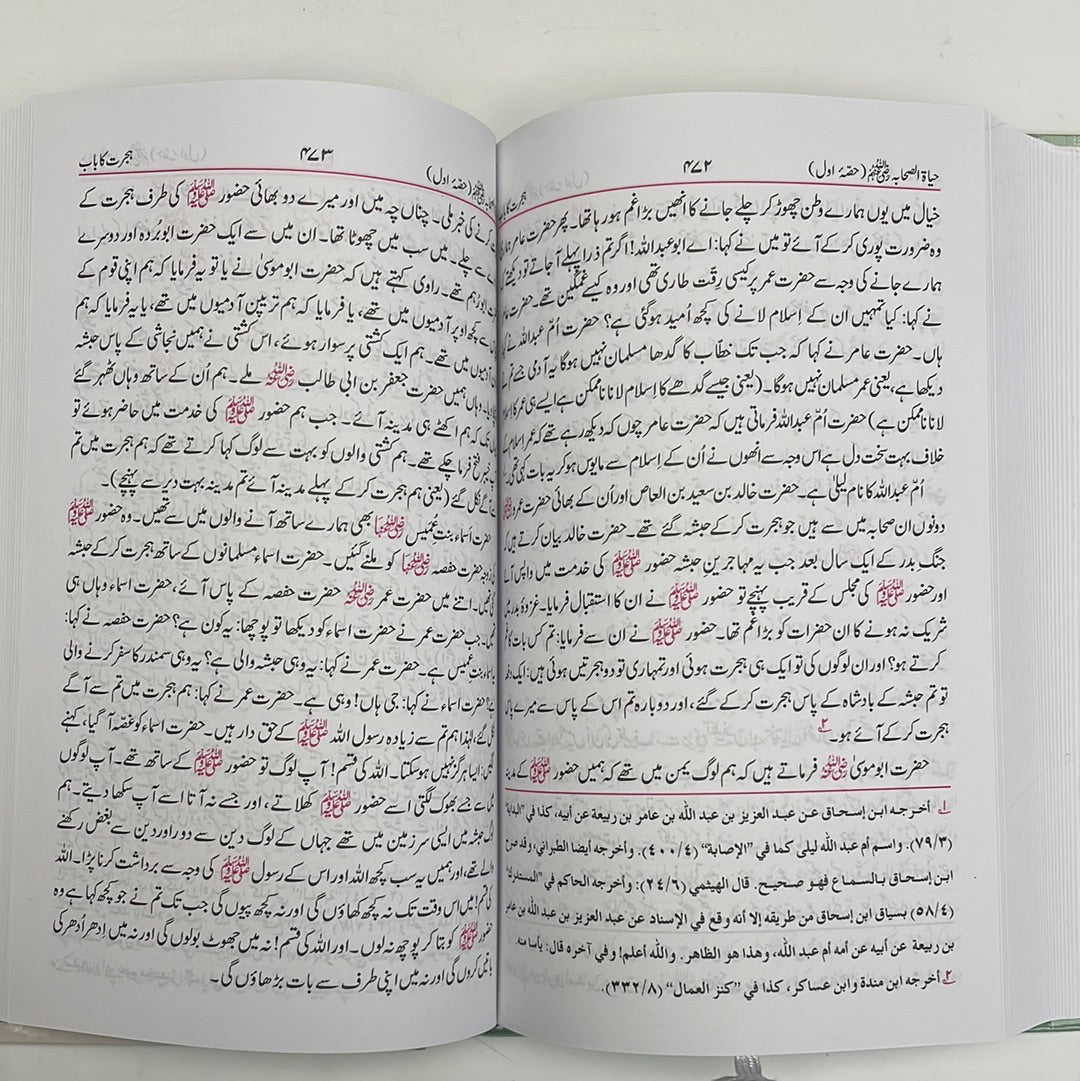 حیاۃ الصحابہ رضی اللہ عنہم (حصّہ اول)
۴۷۲
ہجرت کا باب
خیال میں یوں ہمارے وطن چھوڑ کر چلے جانے کا انھیں بڑا غم ہو رہا تھا۔ پھر حضرت عامر
وہ ضرورت پوری کر کے آئے تو میں نے کہا: اے ابو عبد اللہ! اگر تم ذرا پہلے آ جاتے تو دیکھتے
ہمارے جانے کی وجہ سے حضرت عمر پر کیسی رقّت طاری تھی اور وہ کیسے غمگین تھے۔ حضرت
نے کہا: کیا تمہیں ان کے اِسلام لانے کی کچھ اُمید ہوگئی ہے؟ حضرت اُمّ عبد اللہ نے کہا
ہاں۔ حضرت عامر نے کہا کہ جب تک خطّاب کا گدھا مسلمان نہیں ہوگا یہ آدمی جسے تم نے
دیکھا ہے، یعنی عمر مسلمان نہیں ہوگا۔ (یعنی جیسے گدھے کا اِسلام لانا ناممکن ہے ایسے ہی عمر کا اِسلام
لانا ناممکن ہے) حضرت اُمّ عبد اللہ فرماتی ہیں کہ حضرت عامر چوں کہ دیکھ رہے تھے کہ عمر اِسلام کے
خلاف بہت سخت دل ہے اس وجہ سے انھوں نے اُن کے اِسلام سے مایوس ہو کر یہ بات کہی تھی۔
اُمّ عبد اللہ کا نام لیلیٰ ہے۔ حضرت خالد بن سعید بن العاص اور اُن کے بھائی حضرت عمرو
دونوں ان صحابہ میں سے ہیں جو ہجرت کر کے حبشہ گئے تھے۔ حضرت خالد بیان کرتے ہیں
جنگِ بدر کے ایک سال بعد جب یہ مہاجرینِ حبشہ حضور ﷺ کی خدمت میں واپس آئے
اور حضور ﷺ کی مجلس کے قریب پہنچے تو حضور ﷺ نے ان کا استقبال فرمایا۔ غزوۂ بدر میں
شریک نہ ہونے کا ان حضرات کو بڑا غم تھا۔ حضور ﷺ نے ان سے فرمایا: تم کس بات کا غم
کرتے ہو؟ اور ان لوگوں کی تو ایک ہی ہجرت ہوئی اور تمہاری تو دو ہجرتیں ہوئی ہیں: ایک دفعہ
تو تم حبشہ کے بادشاہ کے پاس ہجرت کر کے گئے، اور دوبارہ تم اس کے پاس سے میرے پاس
ہجرت کر کے آئے ہو۔ ۲
حضرت ابوموسیٰ رضی اللہ عنہ فرماتے ہیں کہ ہم لوگ یمن میں تھے کہ ہمیں حضور ﷺ کے مدینہ
۱ أخرجه ابن إسحاق عن عبد العزيز بن عبد الله بن عامر بن ربيعة عن أبيه، كذا في "البداية"
(۷۹/۳). واسم أم عبد الله ليلى كما في "الإصابة" (۴۰۰/۴). وأخرجه أيضا الطبراني، وقد صرح
ابن إسحاق بالسماع فهو صحيح. قال الهيثمي (۲۴/۶): وأخرجه الحاكم في "المستدرك"
(۵۸/۴) بسياق ابن إسحاق من طريقه إلا أنه وقع في الإسناد عن عبد العزيز بن عبد الله بن عامر
بن ربيعة عن أبيه عن أمه أم عبد الله، وهذا هو الظاهر. والله أعلم! وفي آخره قال: يأسا منه.
۲ أخرجه ابن مندة وابن عساكر، كذا في "كنز العمال" (۳۳۲/۸).
(حصّہ اول)
۴۷۳
ہجرت کا باب
کرنے کی خبر ملی۔ چناں چہ میں اور میرے دو بھائی حضور ﷺ کی طرف ہجرت کے
سے چلے۔ میں سب میں چھوٹا تھا۔ ان میں سے ایک حضرت ابوبُردہ اور دوسرے
ابورُہم تھے۔ راوی کہتے ہیں کہ حضرت ابوموسیٰ نے یا تو یہ فرمایا کہ ہم اپنی قوم کے
سے کچھ اوپر آدمیوں میں تھے، یا فرمایا کہ ہم ترپین آدمیوں میں تھے، یا یہ فرمایا کہ ہم
آدمیوں میں تھے۔ ہم ایک کشتی پر سوار ہوئے، اس کشتی نے ہمیں نجاشی کے پاس حبشہ
دیا۔ وہاں ہمیں حضرت جعفر بن ابی طالب رضی اللہ عنہ ملے۔ ہم اُن کے ساتھ وہاں ٹھہر گئے
تک کہ ہم اکٹھے ہی مدینہ آئے۔ جب ہم حضور ﷺ کی خدمت میں حاضر ہوئے تو
فتح فرما چکے تھے۔ ہم کشتی والوں کو بہت سے لوگ کہا کرتے تھے کہ ہم ہجرت میں تم
سے آگے نکل گئے (یعنی ہم ہجرت کر کے پہلے مدینہ آئے تم مدینہ بہت دیر سے پہنچے)۔
حضرت اَسماء بنتِ عُمیس رضی اللہ عنہا بھی ہمارے ساتھ آنے والوں میں سے تھیں۔ وہ حضور ﷺ
زوجہ حضرت حفصہ رضی اللہ عنہا کو ملنے گئیں۔ حضرت اسماء مسلمانوں کے ساتھ ہجرت کر کے حبشہ
تھیں۔ اتنے میں حضرت عمر رضی اللہ عنہ حضرت حفصہ کے پاس آئے، حضرت اسماء وہاں ہی
جب حضرت عمر نے حضرت اسماء کو دیکھا تو پوچھا: یہ کون ہے؟ حضرت حفصہ نے کہا:
اسماء بنتِ عمیس ہے۔ حضرت عمر نے کہا: یہ وہی حبشہ والی ہے؟ یہ وہی سمندر کا سفر کرنے والی
حضرت اسماء نے کہا: جی ہاں! وہی ہے۔ حضرت عمر نے کہا: ہم ہجرت میں تم سے آگے
نکل گئے، لہٰذا ہم تم سے زیادہ رسول اللہ ﷺ کے حق دار ہیں۔ حضرت اسماء کو غصّہ آ گیا، کہنے
لگیں: ایسا ہرگز نہیں ہو سکتا۔ اللہ کی قسم! آپ لوگ تو حضور ﷺ کے ساتھ تھے۔ آپ لوگوں
میں سے جسے بھوک لگتی اُسے حضور ﷺ کھلاتے، اور جسے نہ آتا اسے آپ سکھا دیتے۔ ہم
حبشہ میں ایسی سرزمین میں تھے جہاں کے لوگ دین سے دور اور دین سے بغض رکھنے
والے تھے، اور ہمیں یہ سب کچھ اللہ اور اس کے رسول ﷺ کی وجہ سے برداشت کرنا پڑا۔ اللہ
کی قسم! میں اس وقت تک نہ کچھ کھاؤں گی اور نہ کچھ پیوں گی جب تک تم نے جو کچھ کہا ہے وہ
حضور ﷺ کو بتا کر پوچھ نہ لوں۔ اور اللہ کی قسم! نہ میں جھوٹ بولوں گی اور نہ میں اِدھر اُدھر کی
باتیں کروں گی اور نہ میں اپنی طرف سے بات بڑھاؤں گی۔